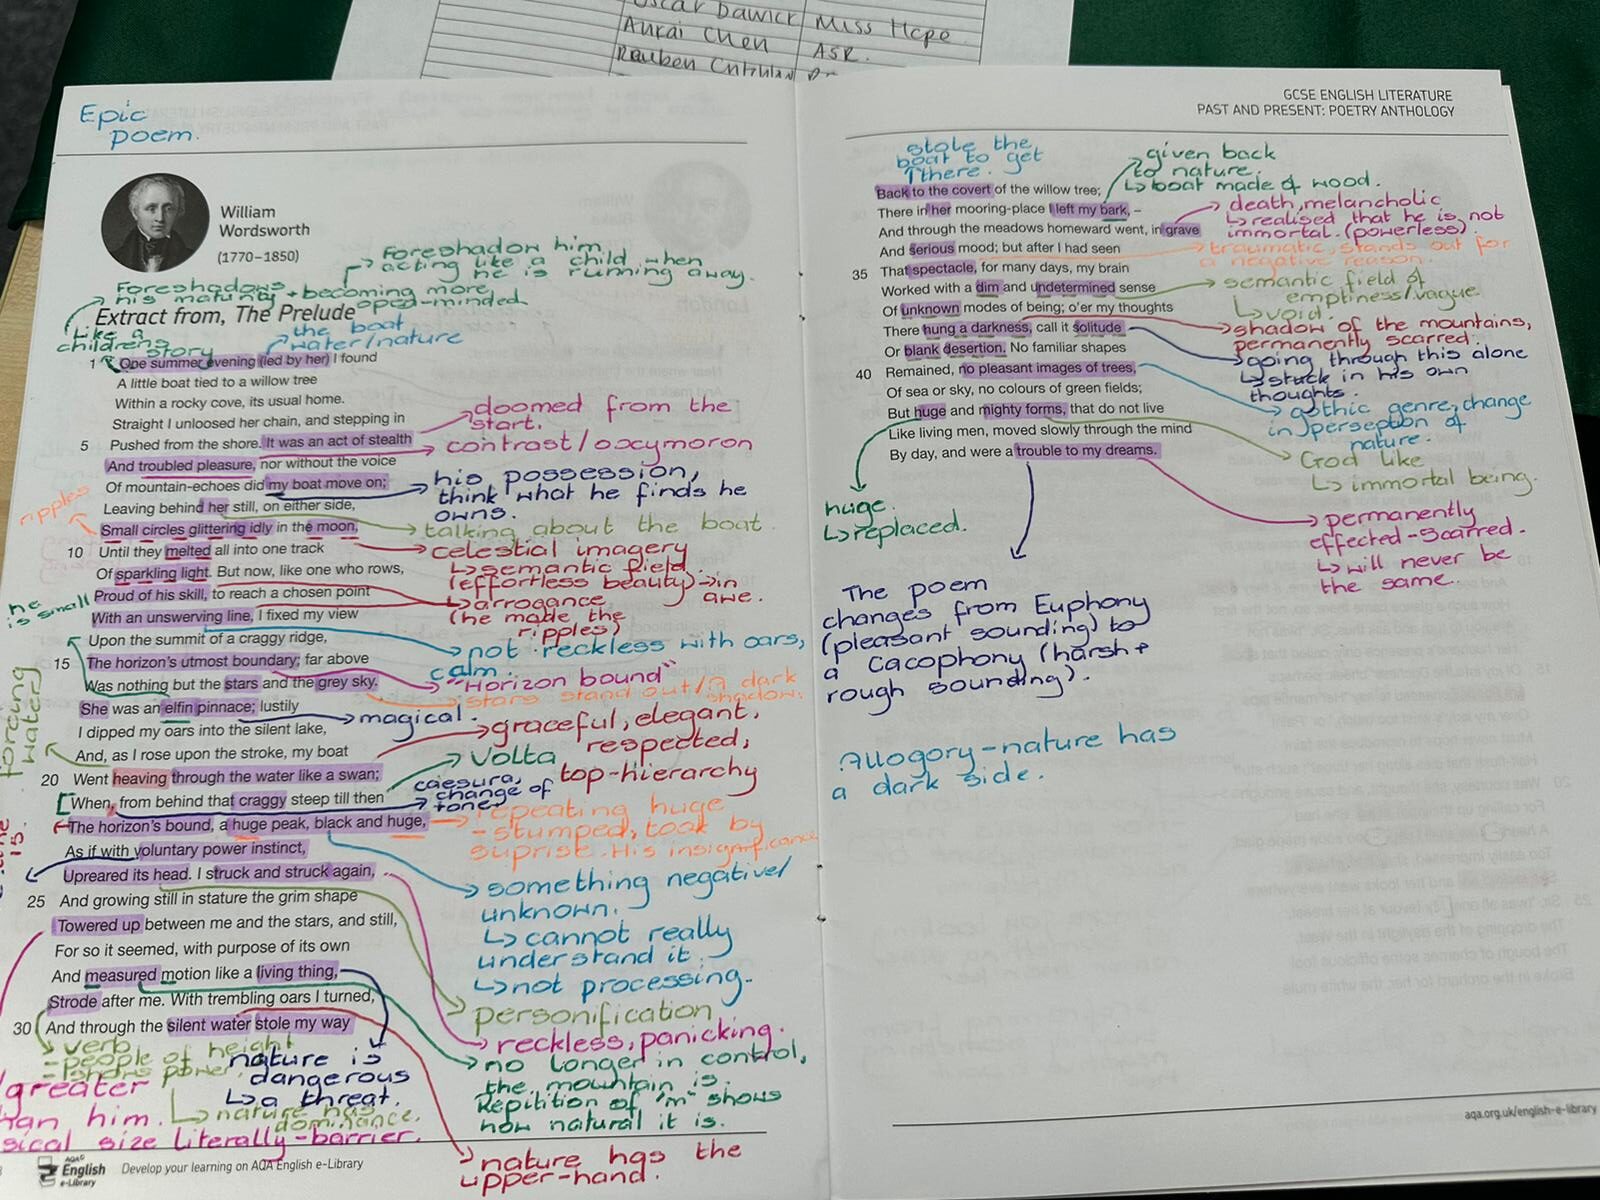 Oscar Dawick Miss Hope
Aurai Chen ASR.
Reuben
Epic
poem.
William
Wordsworth
(1770–1850)
Foreshadow him
acting like a child when
he is running away.
Foreshadows
his maturity + becoming more
oped-minded
Extract from, The Prelude
Like a
childrens
story
the boat
water/nature
1 One summer evening (led by her) I found
A little boat tied to a willow tree
Within a rocky cove, its usual home.
Straight I unloosed her chain, and stepping in
5 Pushed from the shore. It was an act of stealth
And troubled pleasure, nor without the voice
Of mountain-echoes did my boat move on;
Leaving behind her still, on either side,
Small circles glittering idly in the moon,
10 Until they melted all into one track
Of sparkling light. But now, like one who rows,
Proud of his skill, to reach a chosen point
With an unswerving line, I fixed my view
Upon the summit of a craggy ridge,
15 The horizon's utmost boundary; far above
Was nothing but the stars and the grey sky.
She was an elfin pinnace; lustily
I dipped my oars into the silent lake,
And, as I rose upon the stroke, my boat
20 Went heaving through the water like a swan;
When, from behind that craggy steep till then
The horizon's bound, a huge peak, black and huge,
As if with voluntary power instinct,
Upreared its head. I struck and struck again,
25 And growing still in stature the grim shape
Towered up between me and the stars, and still,
For so it seemed, with purpose of its own
And measured motion like a living thing,
Strode after me. With trembling oars I turned,
30 And through the silent water stole my way
doomed from the
start.
contrast/oxymoron
his possession,
think what he finds he
owns.
ripples
talking about the boat.
celestial imagery
↳semantic field.
(effortless beauty)→in
awe.
↳arrogance
(he made the
ripples)
he
is small
not reckless with oars,
calm.
"Horizon bound"
stars stand out/A dark
shadow.
magical.
forcing
water
graceful, elegant,
respected,
top-hierarchy
Volta
caesura,
change of
tone
repeating huge
-stumped, took by
suprise. His insignificance
15.
something negative/
unknown.
↳cannot really
understand it.
↳not processing.
personification
reckless, panicking.
no longer in control,
the mountain is.
Repitition of "m" shows
how natural it is.
verb
=people of height
power.
nature is
dangerous
↳a threat.
↳nature has
dominance.
greater
han him.
sical size literally-barrier.
nature has the
upper-hand.
AQA
English
e-Library
Develop your learning on AQA English e-Library
GCSE ENGLISH LITERATURE
PAST AND PRESENT: POETRY ANTHOLOGY
stole the
boat to get
there.
given back
to nature.
↳boat made of wood.
Back to the covert of the willow tree;
There in her mooring-place I left my bark, –
And through the meadows homeward went, in grave
And serious mood; but after I had seen
35 That spectacle, for many days, my brain
Worked with a dim and undetermined sense
Of unknown modes of being; o'er my thoughts
There hung a darkness, call it solitude
Or blank desertion. No familiar shapes
40 Remained, no pleasant images of trees,
Of sea or sky, no colours of green fields;
But huge and mighty forms, that do not live
Like living men, moved slowly through the mind
By day, and were a trouble to my dreams.
death, melancholic
↳realised that he is not
immortal. (powerless)
traumatic, stands out for
a negative reason.
semantic field of
emptiness/vague
↳void.
shadow of the mountains,
permanently scarred.
going through this alone
↳stuck in his own
thoughts.
gothic genre, change
in perseption of
nature.
God like
↳immortal being.
huge
↳replaced.
permanently
effected-scarred.
↳will never be
the same.
The poem
changes from Euphony
(pleasant sounding) to
a Cacophony (harsh +
rough sounding).
Allogory-nature has
a dark side.
aqa.org.uk/english-e-library